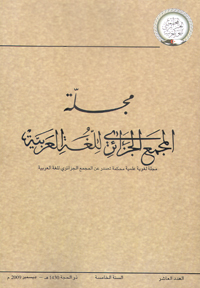 مجلة
المجمع الجزائري للغة العربية
مجلة لغوية علمية محكمة تصدر عن المجمع الجزائري للغة العربية
العدد العاشر
السنة الخامسة
ذو الحجة 1430 هـ - ديسمبر 2009 م